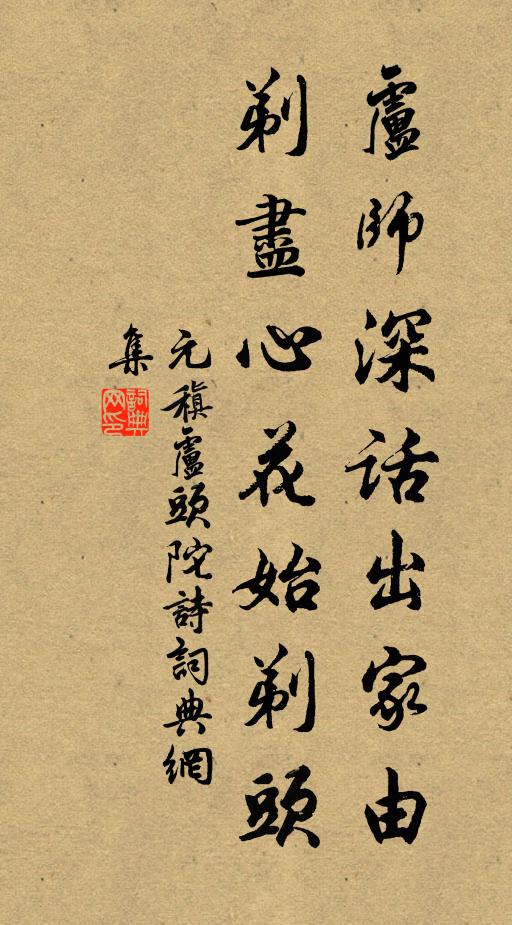 盧師深話出家由
剃盡心花始剃頭
元稹盧頭陀詩詞典網
集
詞典
网印